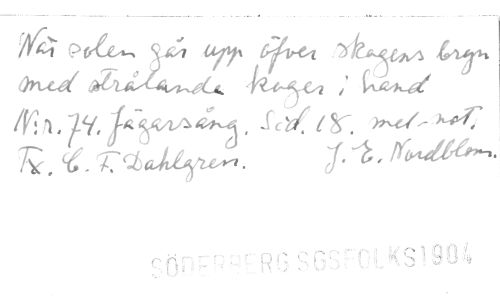 När solen går upp öfver skogens bryn
med strålande koger i hand
N:r. 74. Jägarsång. Sid. 18. mel-not.
Tx. C. F. Dahlgren. J. E. Nordblom.
SÖDERBERG SGSFOLKS1904